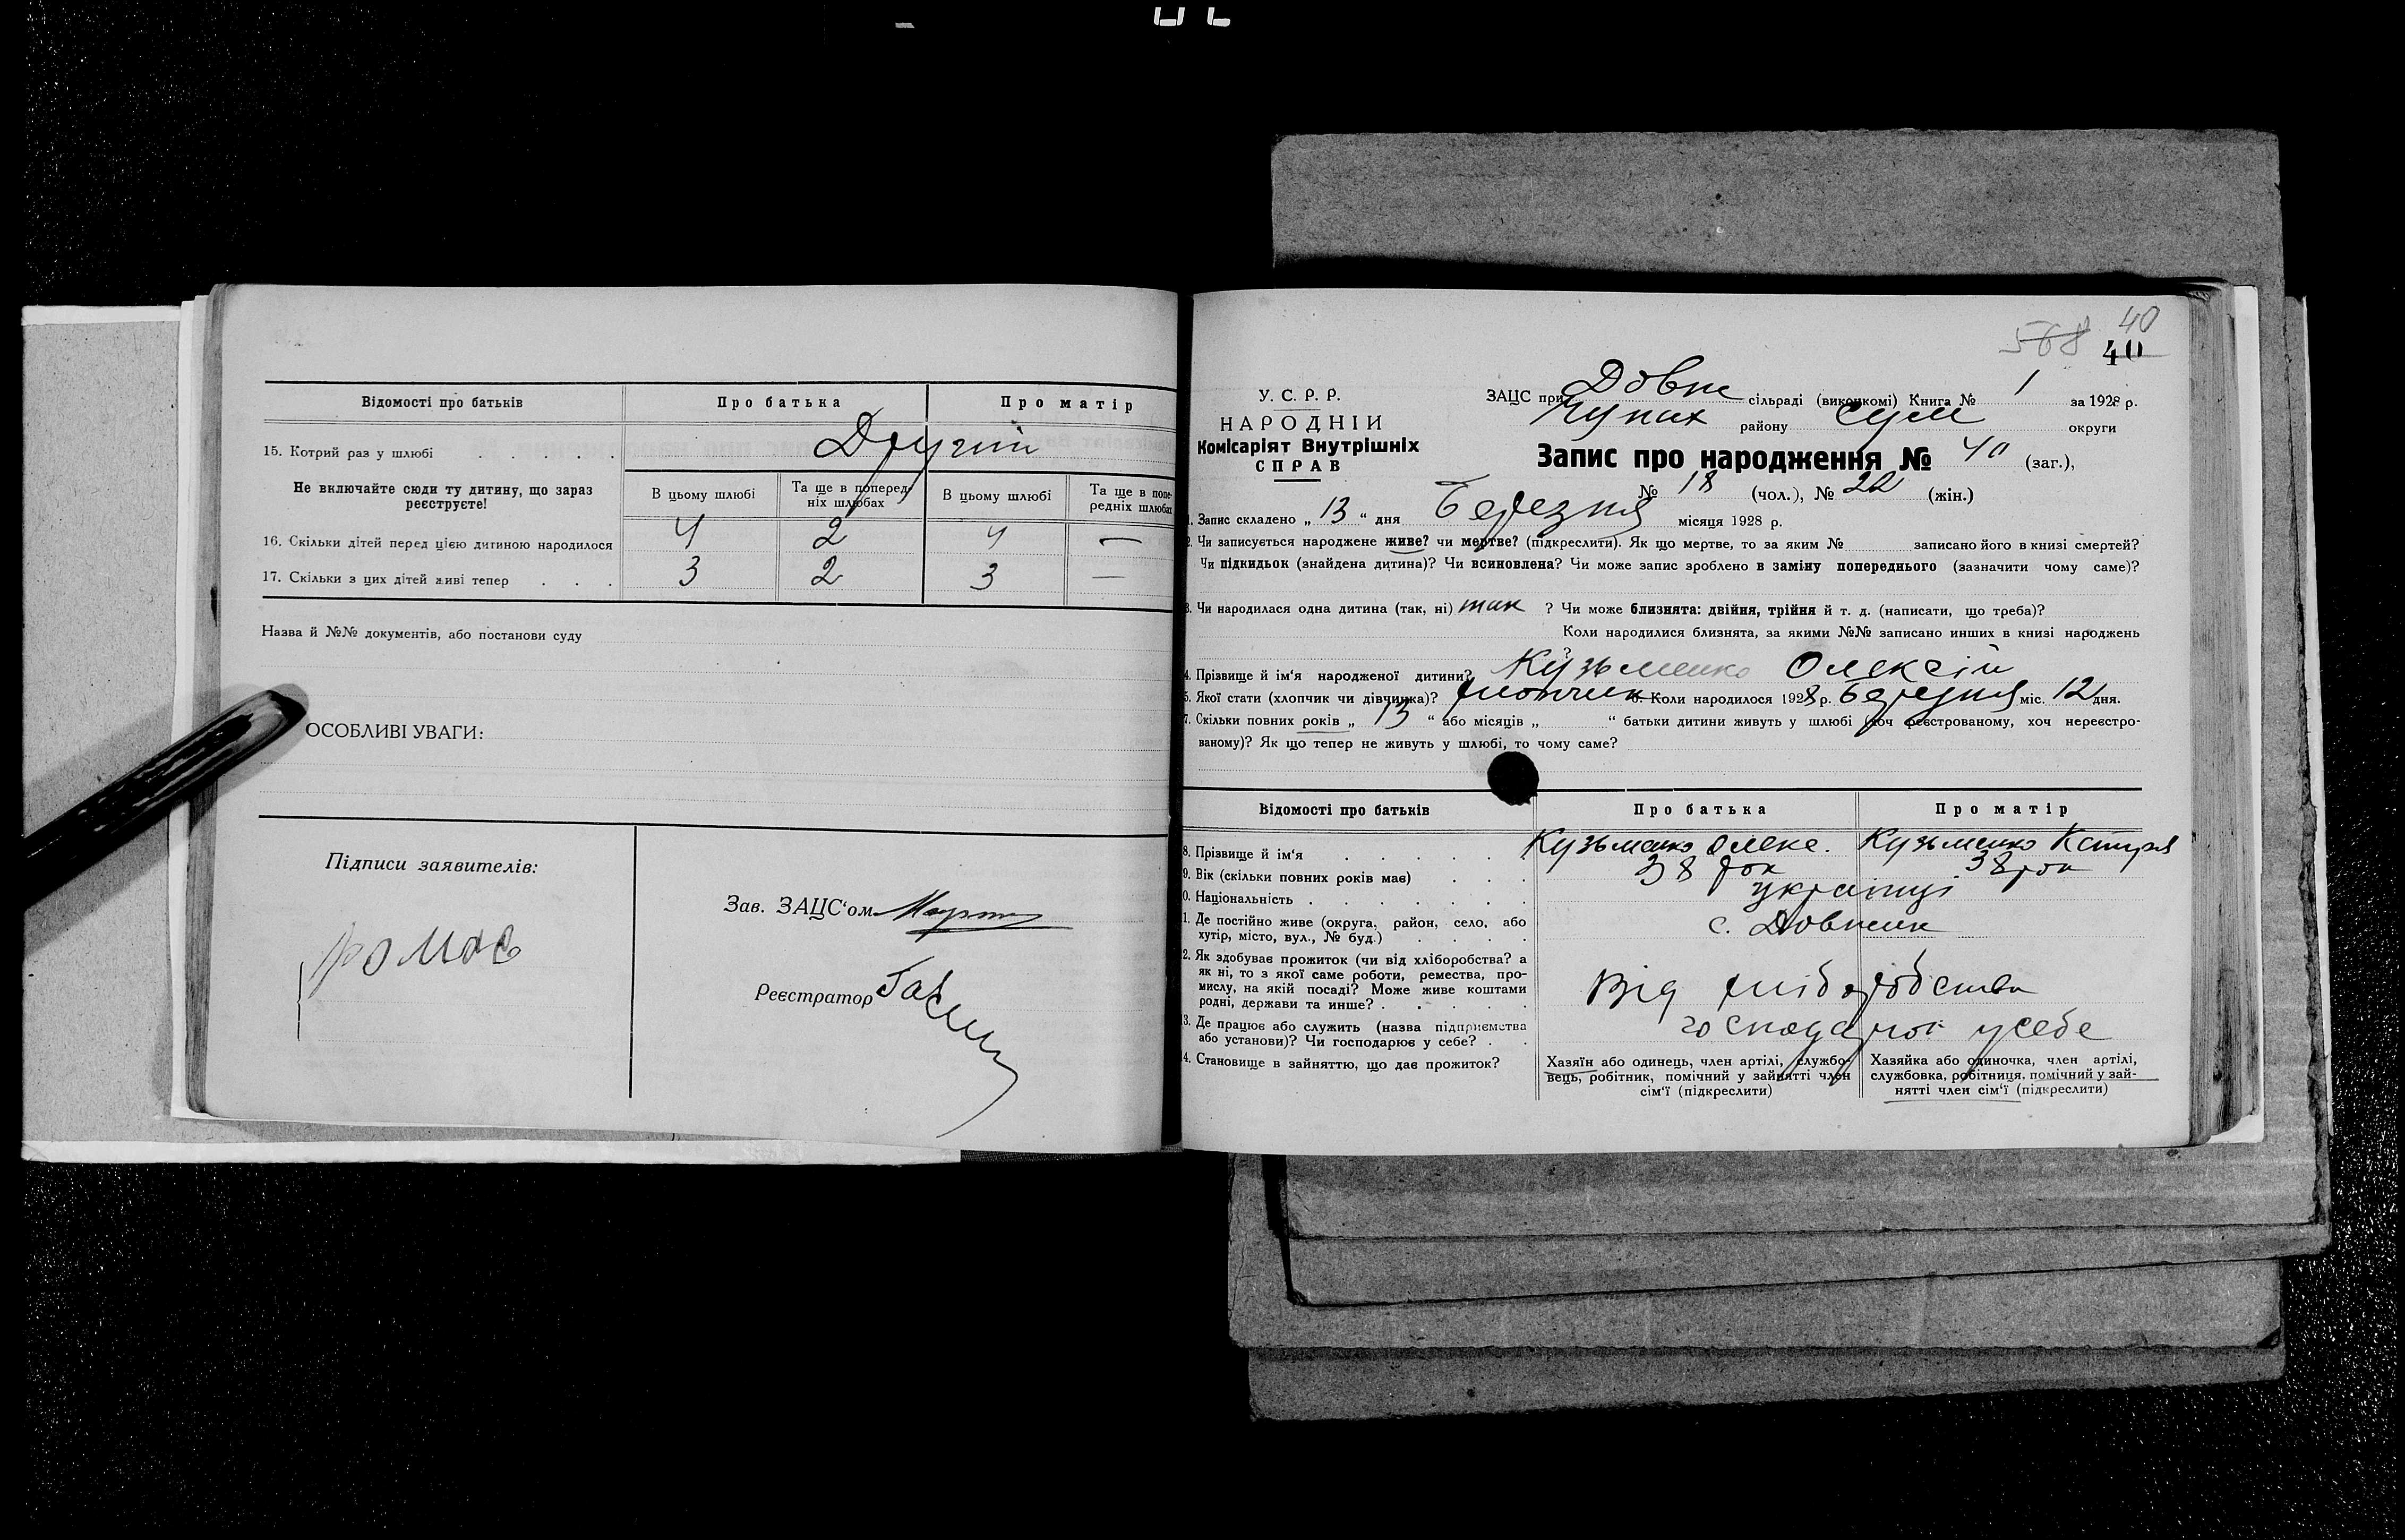 Відомості про батьків Про батька Про матір
15. Котрий раз у шлюбі . . . . Другий
Не включайте сюди ту дитину, що зараз реєструєте!
В цьому шлюбі Та ще в попередніх шлюбах В цьому шлюбі Та ще в попередніх шлюбах
16. Скільки дітей перед цією дитиною народилося 4 2 4 —
17. Скільки з цих дітей живі тепер . . . 3 2 3 —
Назва й №№ документів, або постанови суду
ОСОБЛИВІ УВАГИ:
Підписи заявителів:
Зав. ЗАЦС'ом
Реєстратор
568 40
40
У. С. Р. Р.
НАРОДНІЙ
Комісаріят Внутрішніх
СПРАВ
ЗАЦС при Довж сільраді (виконкомі) Книга № 1 за 1928 р.
Чупах району Сум округи
Запис про народження № 40 (заг.),
№ 18 (чол.), № 22 (жін.)
1. Запис складено „ 13 “ дня Березня місяця 1928 р.
2. Чи записується народжене живе? чи мертве? (підкреслити). Як що мертве, то за яким № записано його в книзі смертей?
Чи підкидьок (знайдена дитина)? Чи всиновлена? Чи може запис зроблено в заміну попереднього (зазначити чому саме)?
3. Чи народилася одна дитина (так, ні) так ? Чи може близнята: двійня, трійня й т. д. (написати, що треба)?
Коли народилися близнята, за якими №№ записано инших в книзі народжень
?
4. Прізвище й ім'я народженої дитини? Кузьменко Олексій
5. Якої стати (хлопчик чи дівчинка)? хлопчик 6. Коли народилося 1928 р. березня міс. 12 дня.
7. Скільки повних років „ 13 “ або місяців „ “ батьки дитини живуть у шлюбі (хоч реєстрованому, хоч нереєстро-
ваному)? Як що тепер не живуть у шлюбі, то чому саме?
Відомості про батьків Про батька Про матір
8. Прізвище й ім'я . . . . . Кузьменко Олекс. Кузьменко Катря
9. Вік (скільки повних років має) . . . 38 рок 38 рок
10. Національність . . . . . . . українці
11. Де постійно живе (округа, район, село, або
хутір, місто, вул., № буд.) . . . . с. Довжик
12. Як здобуває прожиток (чи від хліборобства? а
як ні, то з якої саме роботи, ремества, про-
мислу, на якій посаді? Може живе коштами
родні, держави та инше? . . . . . Від хліборобства
13. Де працює або служить (назва підприємства
або установи)? Чи господарює у себе? . . у себе
14. Становище в зайняттю, що дає прожиток?
Хазяїн або одинець, член артілі, службо-
вець, робітник, помічний у зайнятті член
сім'ї (підкреслити)
Хазяйка або одиночка, член артілі,
службовка, робітниця, помічний у зай-
нятті член сім'ї (підкреслити)